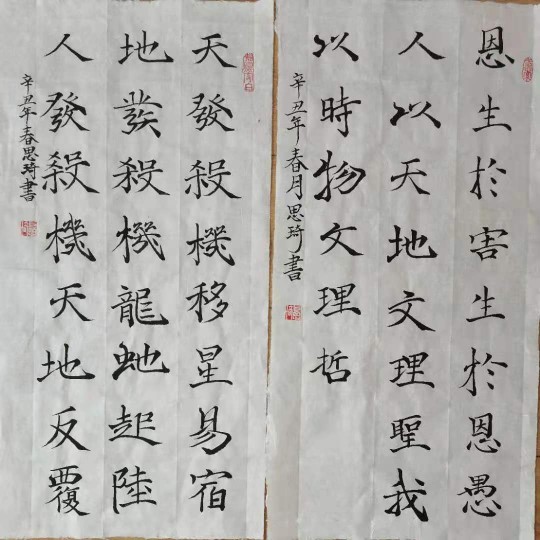 恩生於害生於恩愚
人以天地文理聖我
以時物文理哲
辛丑年春月思琦書
天發殺機移星易宿
地發殺機龍虵起陸
人發殺機天地反覆
辛丑年春思琦書